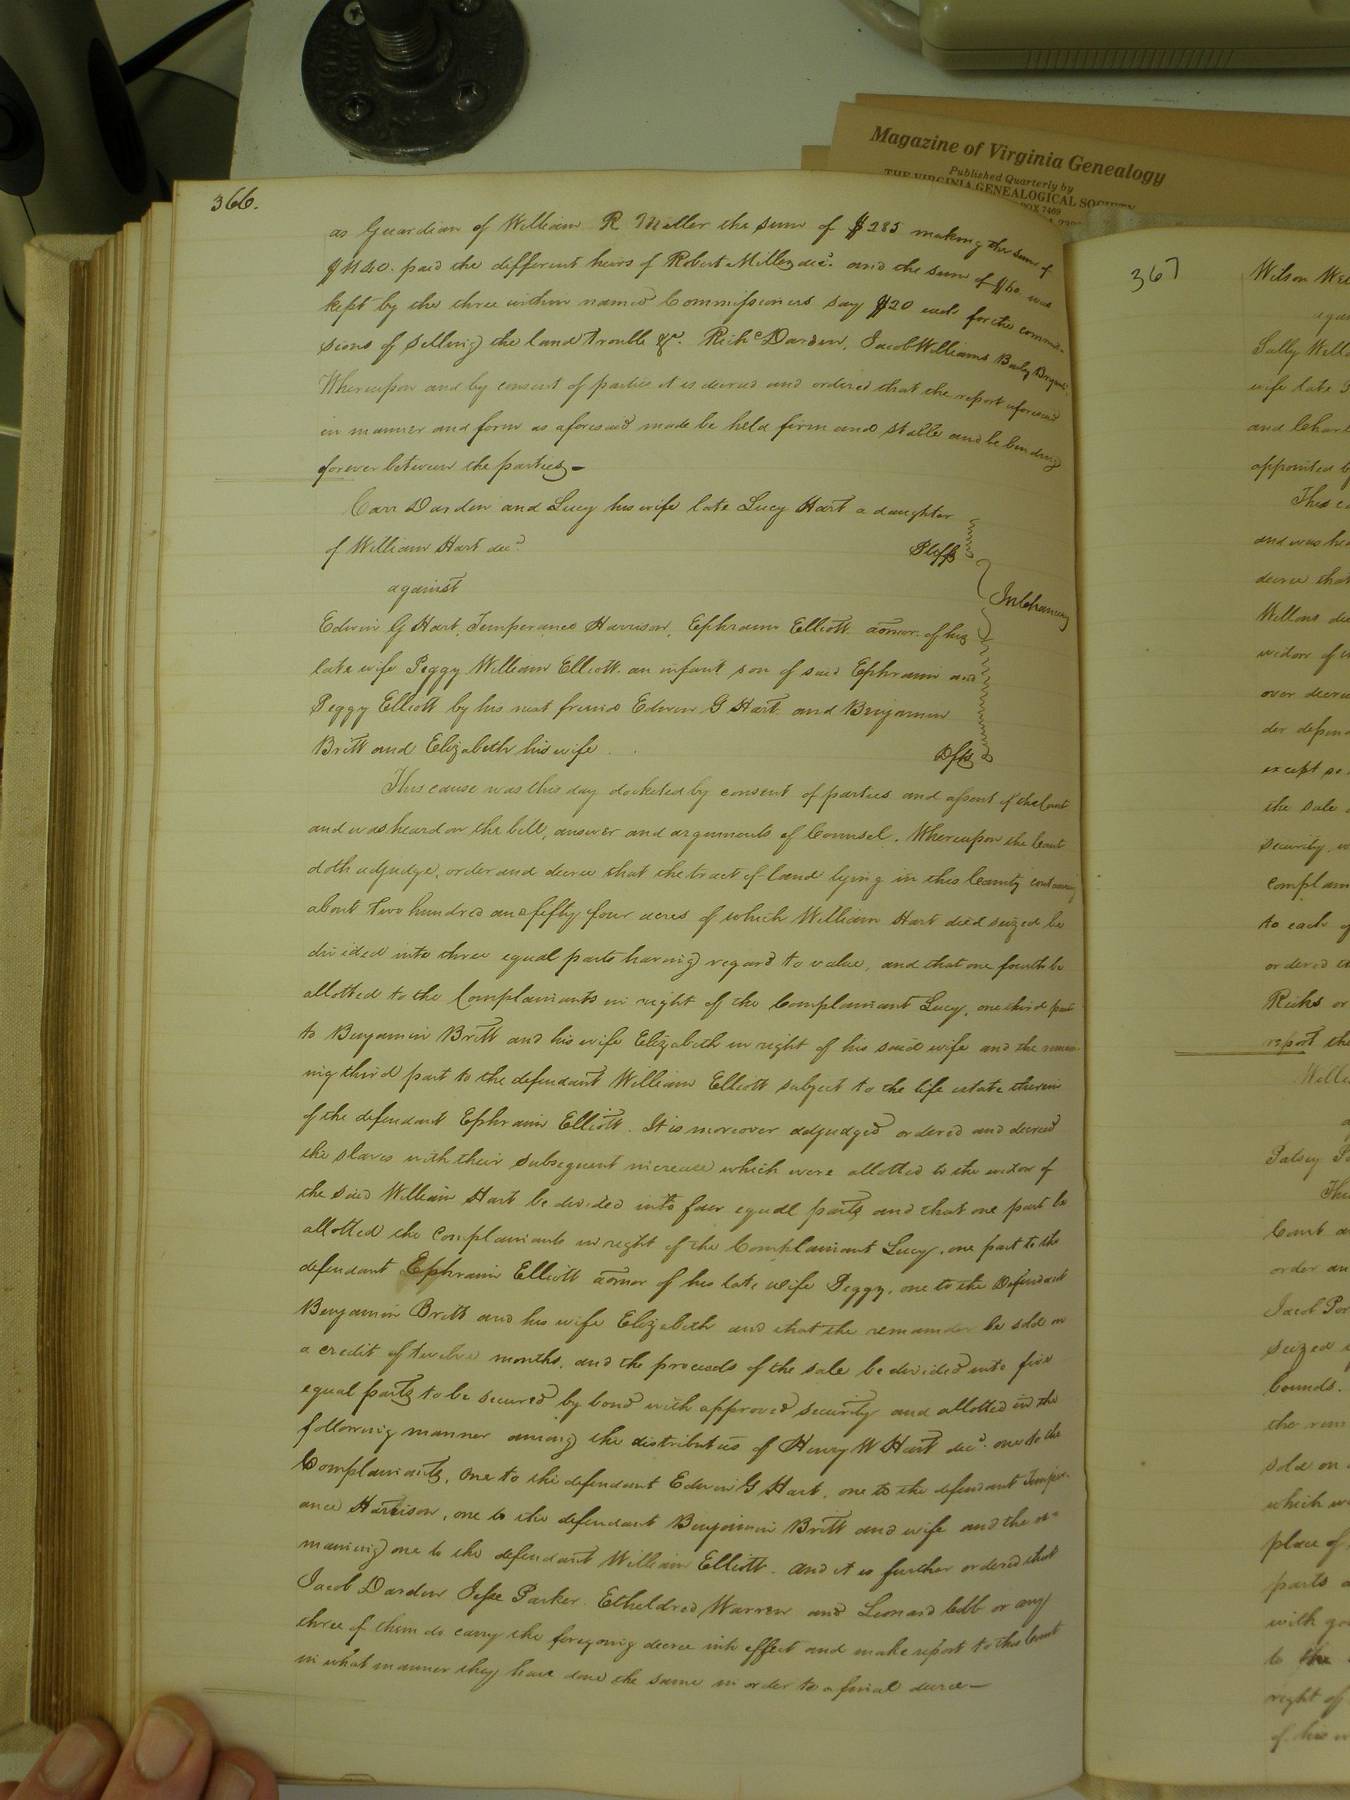 Magazine of Virginia Genealogy
Published Quarterly by
THE VIRGINIA GENEALOGICAL SOCIETY
BOX 7469
366.
as Guardian of William R Miller the sum of $285 making the sum of
$1140. paid the different heirs of Robert Miller decd. and the sum of $60 was
kept by the three within named Commissioners say $20 each for the commis-
sions of selling the land trouble &c. Richd Darden, Jacob Williams
Whereupon and by consent of parties it is decreed and ordered that the report aforesaid
in manner and form as aforesaid made be held firm and stable and be binding
forever between the parties —
Carr Darden and Lucy his wife late Lucy Hart a daughter
of William Hart decd. Pltffs
against
In Chancery
Edwin G Hart, Temperance Harrison, Ephraim Elliott admor. of his
late wife Peggy William Elliott an infant son of said Ephraim and
Peggy Elliott by his next friend Edwin G Hart and Benjamin
Britt and Elizabeth his wife Dfts
This cause was this day docketed by consent of parties and assent of the Court
and was heard on the bill, answer and arguments of Counsel. Whereupon the Court
doth adjudge, order and decree that the tract of land lying in this County containing
about two hundred and fifty four acres of which William Hart died seized be
divided into three equal parts having regard to value, and that one fourth be
allotted to the Complainants in right of the Complainant Lucy, one third part
to Benjamin Britt and his wife Elizabeth in right of his said wife and the remai-
ning third part to the defendant William Elliott subject to the life estate therein
of the defendant Ephraim Elliott. It is moreover adjudged ordered and decreed
the slaves with their subsequent increase which were allotted to the widow of
the said William Hart be divided into four equal parts and that one part be
allotted the complainants in right of the Complainant Lucy, one part to the
defendant Ephraim Elliott admor of his late wife Peggy, one to the Defendant
Benjamin Britt and his wife Elizabeth and that the remainder be sold on
a credit of twelve months, and the proceeds of the sale be divided into five
equal parts to be secured by bond with approved security and allotted in the
following manner among the distributees of Henry W Hart decd. one to the
Complainants, one to the defendant Edwin G Hart, one to the defendant Temper-
ance Harrison, one to the defendant Benjamin Britt and wife and the re-
maining one to the defendant William Elliott. and it is further ordered that
Jacob Darden Jesse Parker Etheldred Warren and Leonard Cobb or any
three of them do carry the foregoing decree into effect and make report to this Court
in what manner they have done the same in order to a final decree —
367
Wilson
Sally
wife late
and
appointed
This
and was
decree that
Willons
widow of
over
der
except
the sale
security
complain
to each of
ordered
Ricks or
report the
Patsey
Court
order an
Jacob
seized
bounds.
the
sold on
which
place of
parts
with
to the
right of
of his